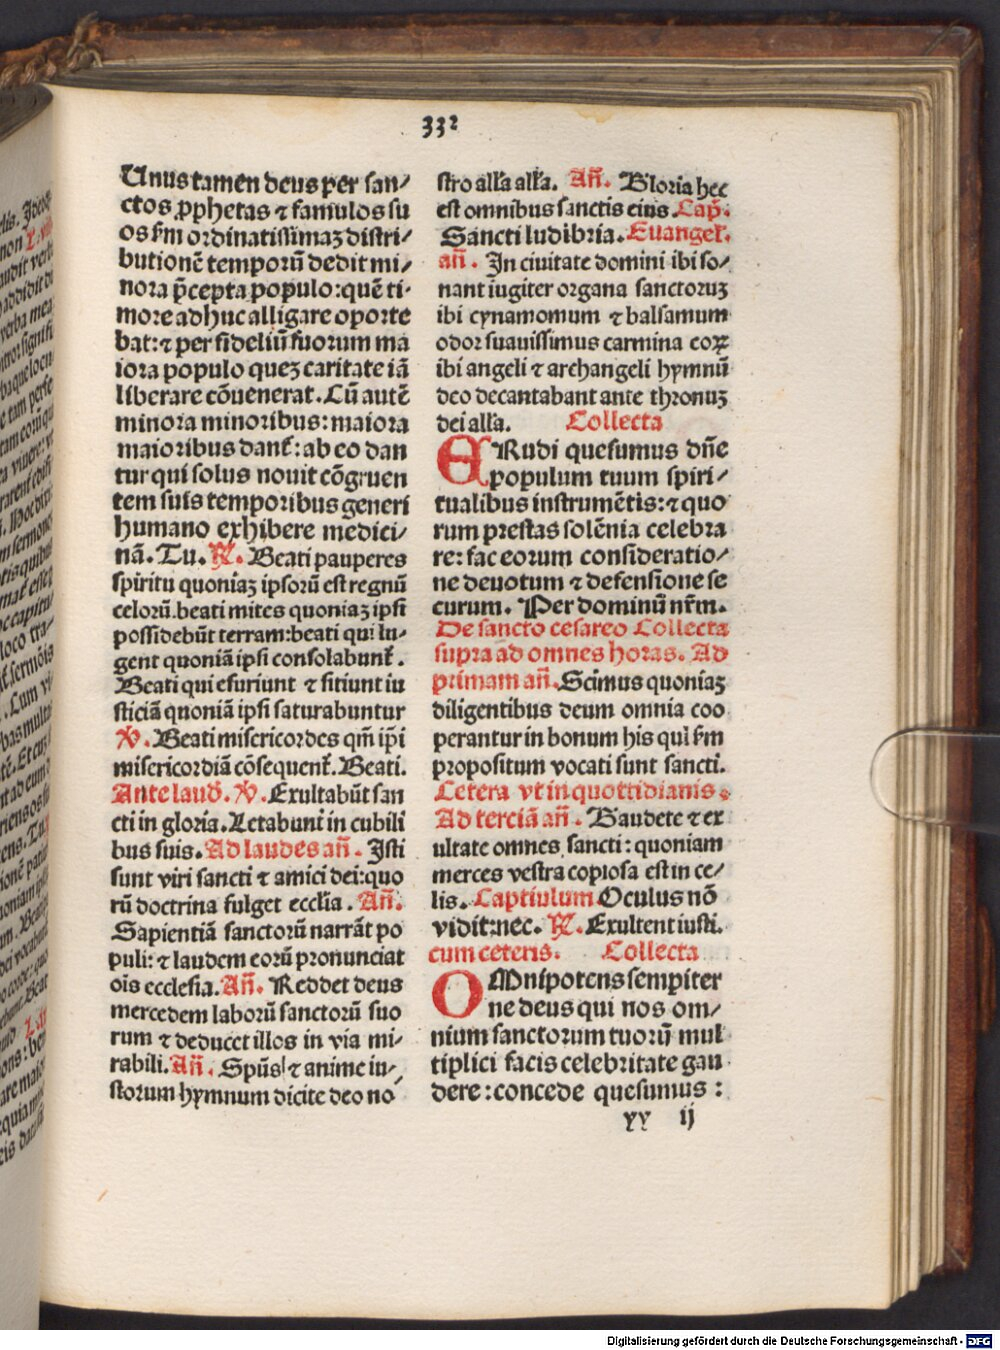 332
Unus tamen deus per san⸗
ctos ꝓphetas ⁊ famulos su
os ẜm ordinatissimaꝫ distri⸗
butionē temporū dedit mi⸗
nora p̄cepta populo: quē ti⸗
more adhuc alligare oporte
bat: ⁊ per fideliū suorum ma
iora populo queꝫ caritate iā
liberare cōuenerat. Cū autē
minora minoribus: maiora
maioribus dant᷑: ab eo dan
tur qui solus nouit cōgruen
tem suis temporibus generi
humano exhibere medici⸗
nā. Tu. ℟. Beati pauperes
spiritu quoniaꝫ ipsorū est regnū
celorū. beati mites quoniaꝫ ipsi
possidebūt terram: beati qui lu⸗
gent quoniā ipsi consolabunt᷑.
Beati qui esuriunt ⁊ sitiunt iu
sticiā quoniā ipsi saturabuntur
℣. Beati misericordes qm̄ ip̄i
misericordiā cōsequent᷑. Beati.
Ante laud̕. ℣. Exultabūt san
cti in gloria. Letabunt̕ in cubili
bus suis. Ad laudes añ. Isti
sunt viri sancti ⁊ amici dei: quo
rū doctrina fulget eccl̄ia. Añ.
Sapientiā sanctorū narrāt po
puli: ⁊ laudem eorū pronunciat
ois ecclesia. Añ. Reddet deus
mercedem laborū sanctorū suo
rum ⁊ deducet illos in via mi⸗
rabili. Añ. Sp̄us ⁊ anime iu⸗
storum hymnum dicite deo no⸗
stro all̄a all̄a. Añ. Gloria hec
est omnibus sanctis eius. Cap̄.
Sancti ludibria. Euangel̕.
añ. In ciuitate domini ibi so⸗
nant iugiter organa sanctoruꝫ
ibi cynamomum ⁊ balsamum
odor suauissimus carmina eoꝝ
ibi angeli ⁊ archangeli hymnū
deo decantabant ante thronuꝫ
dei all̄a. Collecta
ERudi quesumus dn̄e
populum tuum spiri⸗
tualibus instrumētis: ⁊ quo
rum prestas solēnia celebra
re: fac eorum consideratio⸗
ne deuotum ⁊ defensione se
curum. Per dominū nr̄m.
De sancto cesareo Collecta
supra ad omnes horas. Ad
primam añ. Scimus quoniaꝫ
diligentibus deum omnia coo
perantur in bonum his qui ẜm
propositum vocati sunt sancti.
Cetera vt in quottidianis.
Ad terciā añ. Gaudete ⁊ ex
ultate omnes sancti: quoniam
merces vestra copiosa est in ce⸗
lis. Captiulum Oculus nō
vidit: nec. ℟. Exultent iusti.
cum ceteris. Collecta
OMnipotens sempiter
ne deus qui nos om⸗
nium sanctorum tuorū mul
tiplici facis celebritate gau
dere: concede quesumus:
yy ij
Digitalisierung gefördert durch die Deutsche Forschungsgemeinschaft - DFG